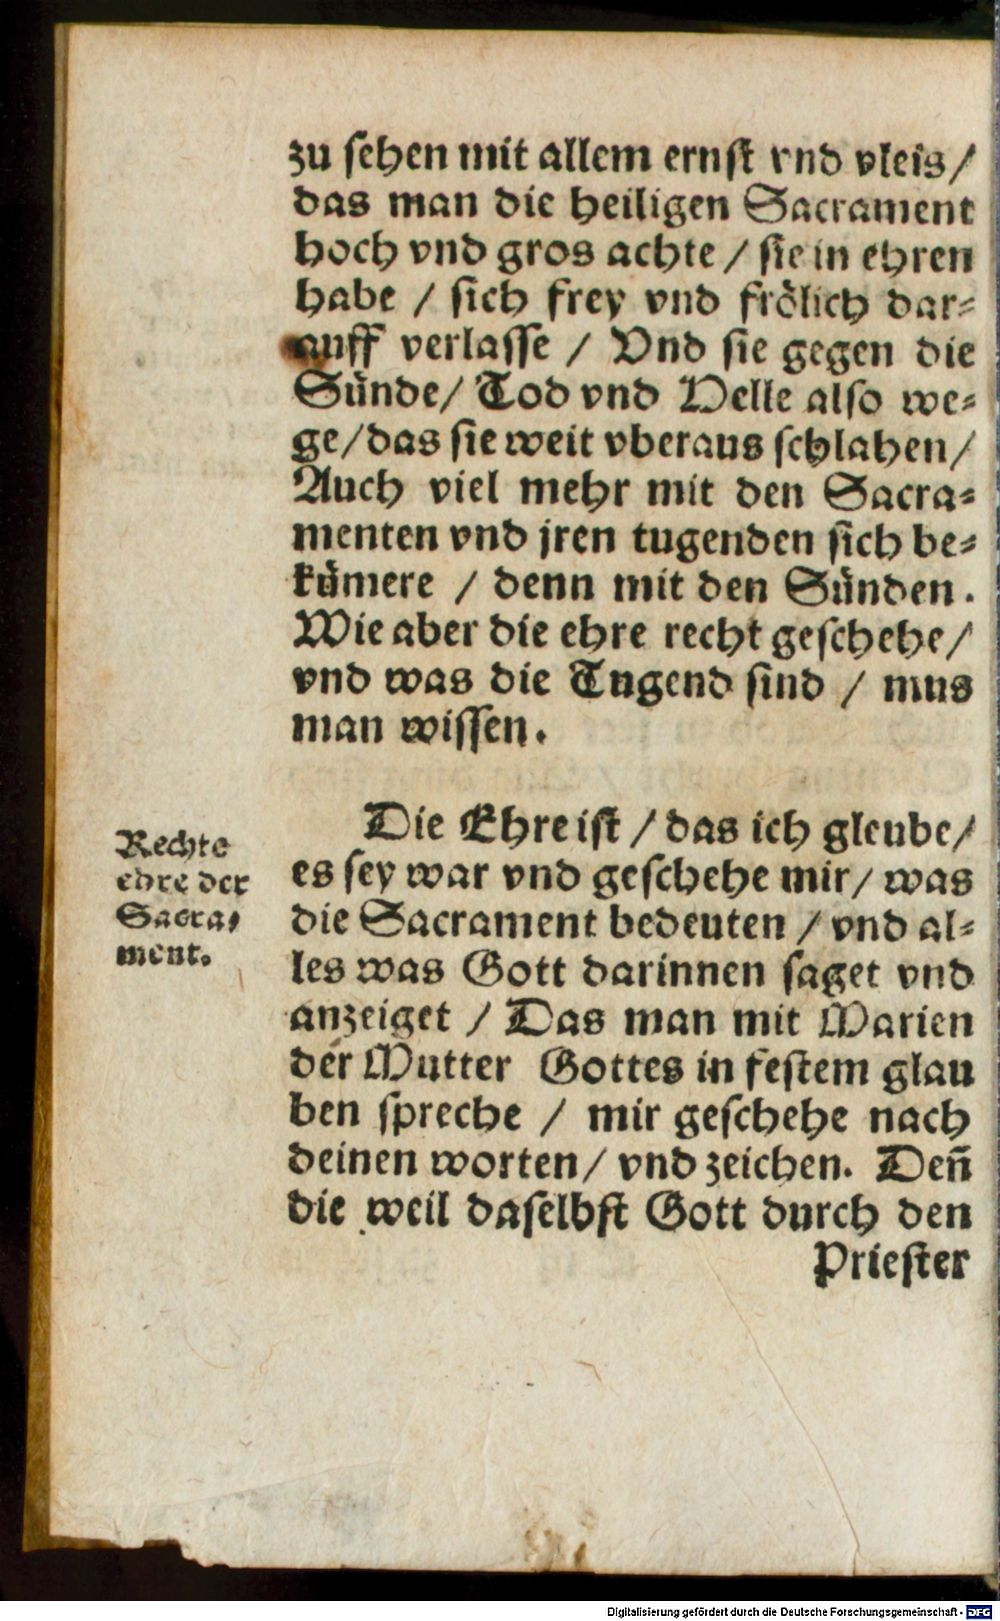 zu sehen mit allem ernst vnd vleis/
das man die heiligen Sacrament
hoch vnd gros achte / sie in ehren
habe / sich frey vnd frölich dar-
auff verlasse / Vnd sie gegen die
Sünde/ Tod vnd Helle also we-
ge/das sie weit vberaus schlahen/
Auch viel mehr mit den Sacra-
menten vnd jren tugenden sich be-
kümere / denn mit den Sünden.
Wie aber die ehre recht geschehe/
vnd was die Tugend sind / mus
man wissen.
Rechte
ehre der
Sacra-
ment.
Die Ehre ist / das ich gleube/
es sey war vnd geschehe mir/ was
die Sacrament bedeuten / vnd al-
les was Gott darinnen saget vnd
anzeiget / Das man mit Marien
der Mutter Gottes in festem glau
ben spreche / mir geschehe nach
deinen worten/ vnd zeichen. Deñ
die weil daselbst Gott durch den
Priester
Digitalisierung gefördert durch die Deutsche Forschungsgemeinschaft - DFG